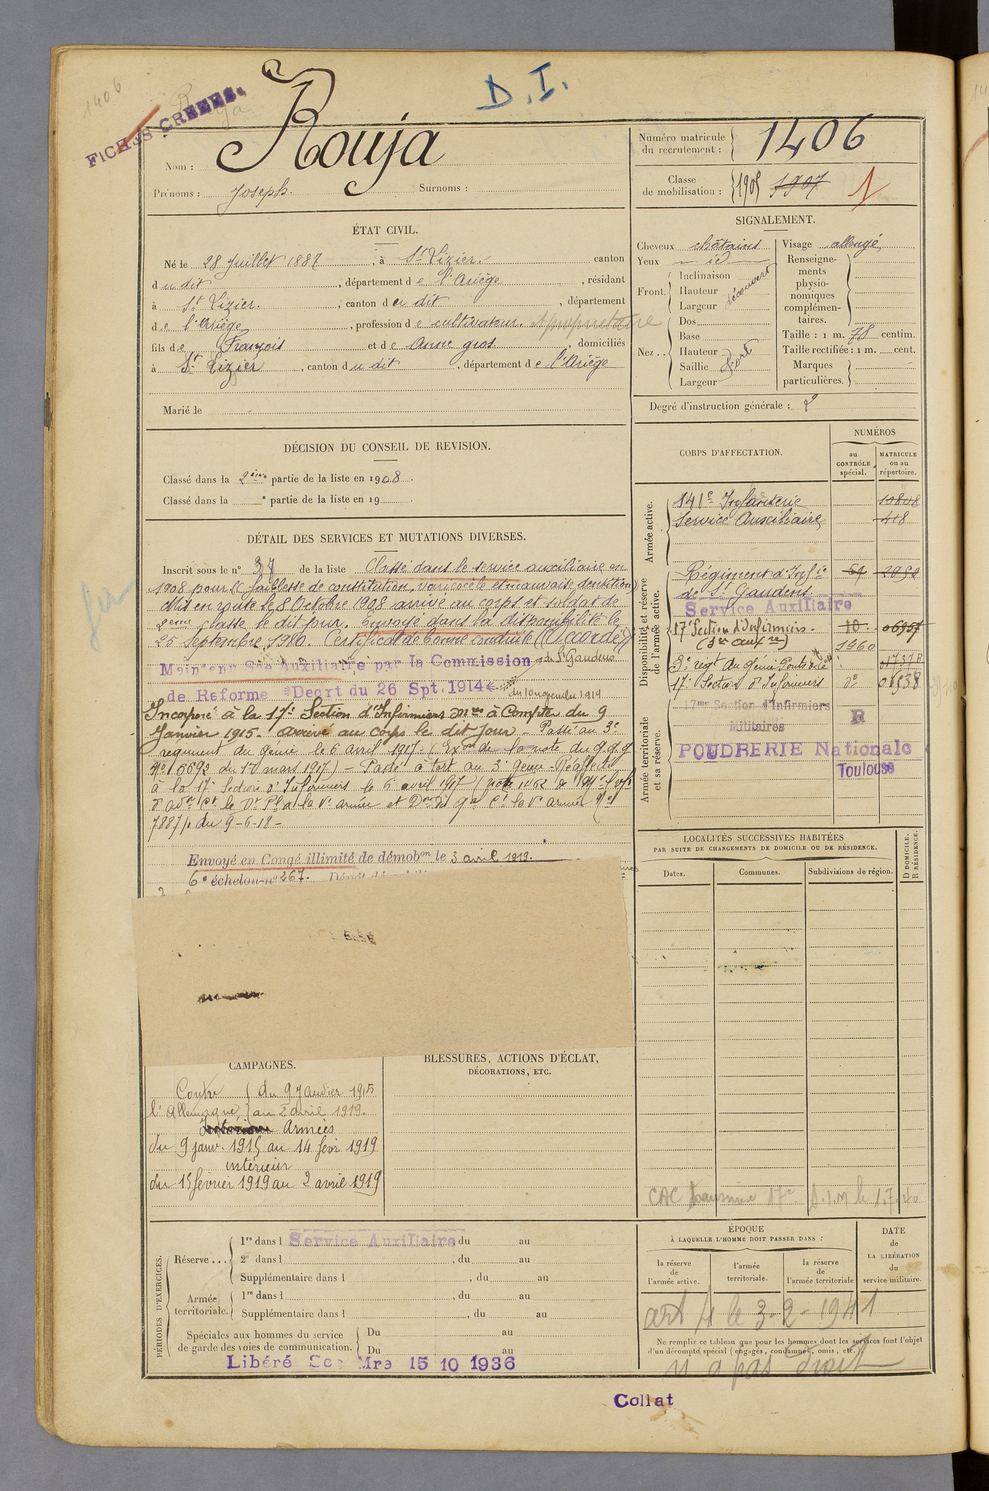 1406
D. I.
FICHES CREEES.
Nom : Rouja
Prénoms : Joseph. Surnoms :
Numéro matricule du recrutement : 1406
Classe de mobilisation : 1905 1907 1
ÉTAT CIVIL.
Né le 28 Juillet 1887, à St Lizier. canton
du dit, département de l'Ariège, résidant
à St Lizier., canton du dit, département
de l'Ariège, profession de cultivateur. propriétaire
fils de François et de Anne Gros, domiciliés
à St Lizier, canton du dit, département de l'Ariège
Marié le
SIGNALEMENT.
Cheveux châtains
Yeux id
Front. Inclinaison
Hauteur découvert
Largeur
Nez.. Dos
Base
Hauteur fort
Saillie
Largeur
Visage allongé
Renseignements physionomiques complémentaires.
Taille : 1 m. 78 centim.
Taille rectifiée : 1 m. cent.
Marques particulières.
Degré d'instruction générale : 2
DÉCISION DU CONSEIL DE REVISION.
Classé dans la 2ème partie de la liste en 1908.
Classé dans la e partie de la liste en 19
DÉTAIL DES SERVICES ET MUTATIONS DIVERSES.
Inscrit sous le n° 37 de la liste Classé dans le service auxiliaire en
1908 pour faiblesse de constitution, varicocèle et mauvaise dentition
Mis en route le 8 Octobre 1908 arrivé au corps et soldat de
2ème classe le dit jour. Envoyé dans la disponibilité le
25 Septembre 1910. Certificat de bonne conduite (Accordé)
Maintenu Sce Auxiliaire par la Commission de St Gaudens
de Reforme Decrt du 26 Spt. 1914 du 10 novembre 1914
Incorporé à la 17e Section d'Infirmiers Mres à Compter du 9
Janvier 1915. arrivé au corps le dit jour. Passé au 3e
regiment du Génie le 6 avril 1917. (Exon de la note du G.Q.G
No 6692 du 17 mars 1917) – Passé à tort au 3e Génie – Réaffecté
à la 17e Section d'Infirmiers le 6 avril 1917
7887/. du 9-6-18 –
Envoyé en Congé illimité de démobon le 3 avril 1919.
6e échelon n° 267.
CORPS D'AFFECTATION.
NUMÉROS
au CONTRÔLE spécial.
MATRICULE ou au répertoire.
Armée active.
141e Infanterie 10808
Service Auxiliaire 418
Disponibilité et réserve de l'armée active.
Régiment d'Infie 2932
de St Gaudens
Service Auxiliaire
17e Section d'Infirmiers. 10 06957
1960
3e régt du Génie
17e Section d'Infirmiers do
Armée territoriale et sa réserve.
17me Section d'Infirmiers
Militaires R
POUDRERIE Nationale
Toulouse
LOCALITÉS SUCCESSIVES HABITÉES
PAR SUITE DE CHANGEMENTS DE DOMICILE OU DE RÉSIDENCE.
Dates. Communes. Subdivisions de région. D DOMICILE. R RÉSIDENCE.
CAMPAGNES.
Contre du 9 Janvier 1915
l'Allemagne, au 2 avril 1919.
Armées
du 9 janv. 1915 au 14 févr 1919
intérieur
du 15 février 1919 au 2 avril 1919
BLESSURES, ACTIONS D'ÉCLAT,
DÉCORATIONS, ETC.
CAC 17e D.I.M le 1.7.40
PÉRIODES D'EXERCICES.
Réserve... 1re dans l Service Auxiliaire du au
2e dans l , du au
Supplémentaire dans l , du au
Armée territoriale. 1re dans l , du au
Supplémentaire dans l , du au
Spéciales aux hommes du service de garde des voies de communication. Du au
Du au
Libéré Sce Mre 15 10 1936
ÉPOQUE
À LAQUELLE L'HOMME DOIT PASSER DANS :
la réserve de l'armée active.
l'armée territoriale.
la réserve de l'armée territoriale
DATE de LA LIBÉRATION du service militaire.
le 3-2-1941
Ne remplir ce tableau que pour les hommes dont les services font l'objet
d'un décompte spécial (engagés, condamnés, omis, etc.).
n'a pas droit
Collat